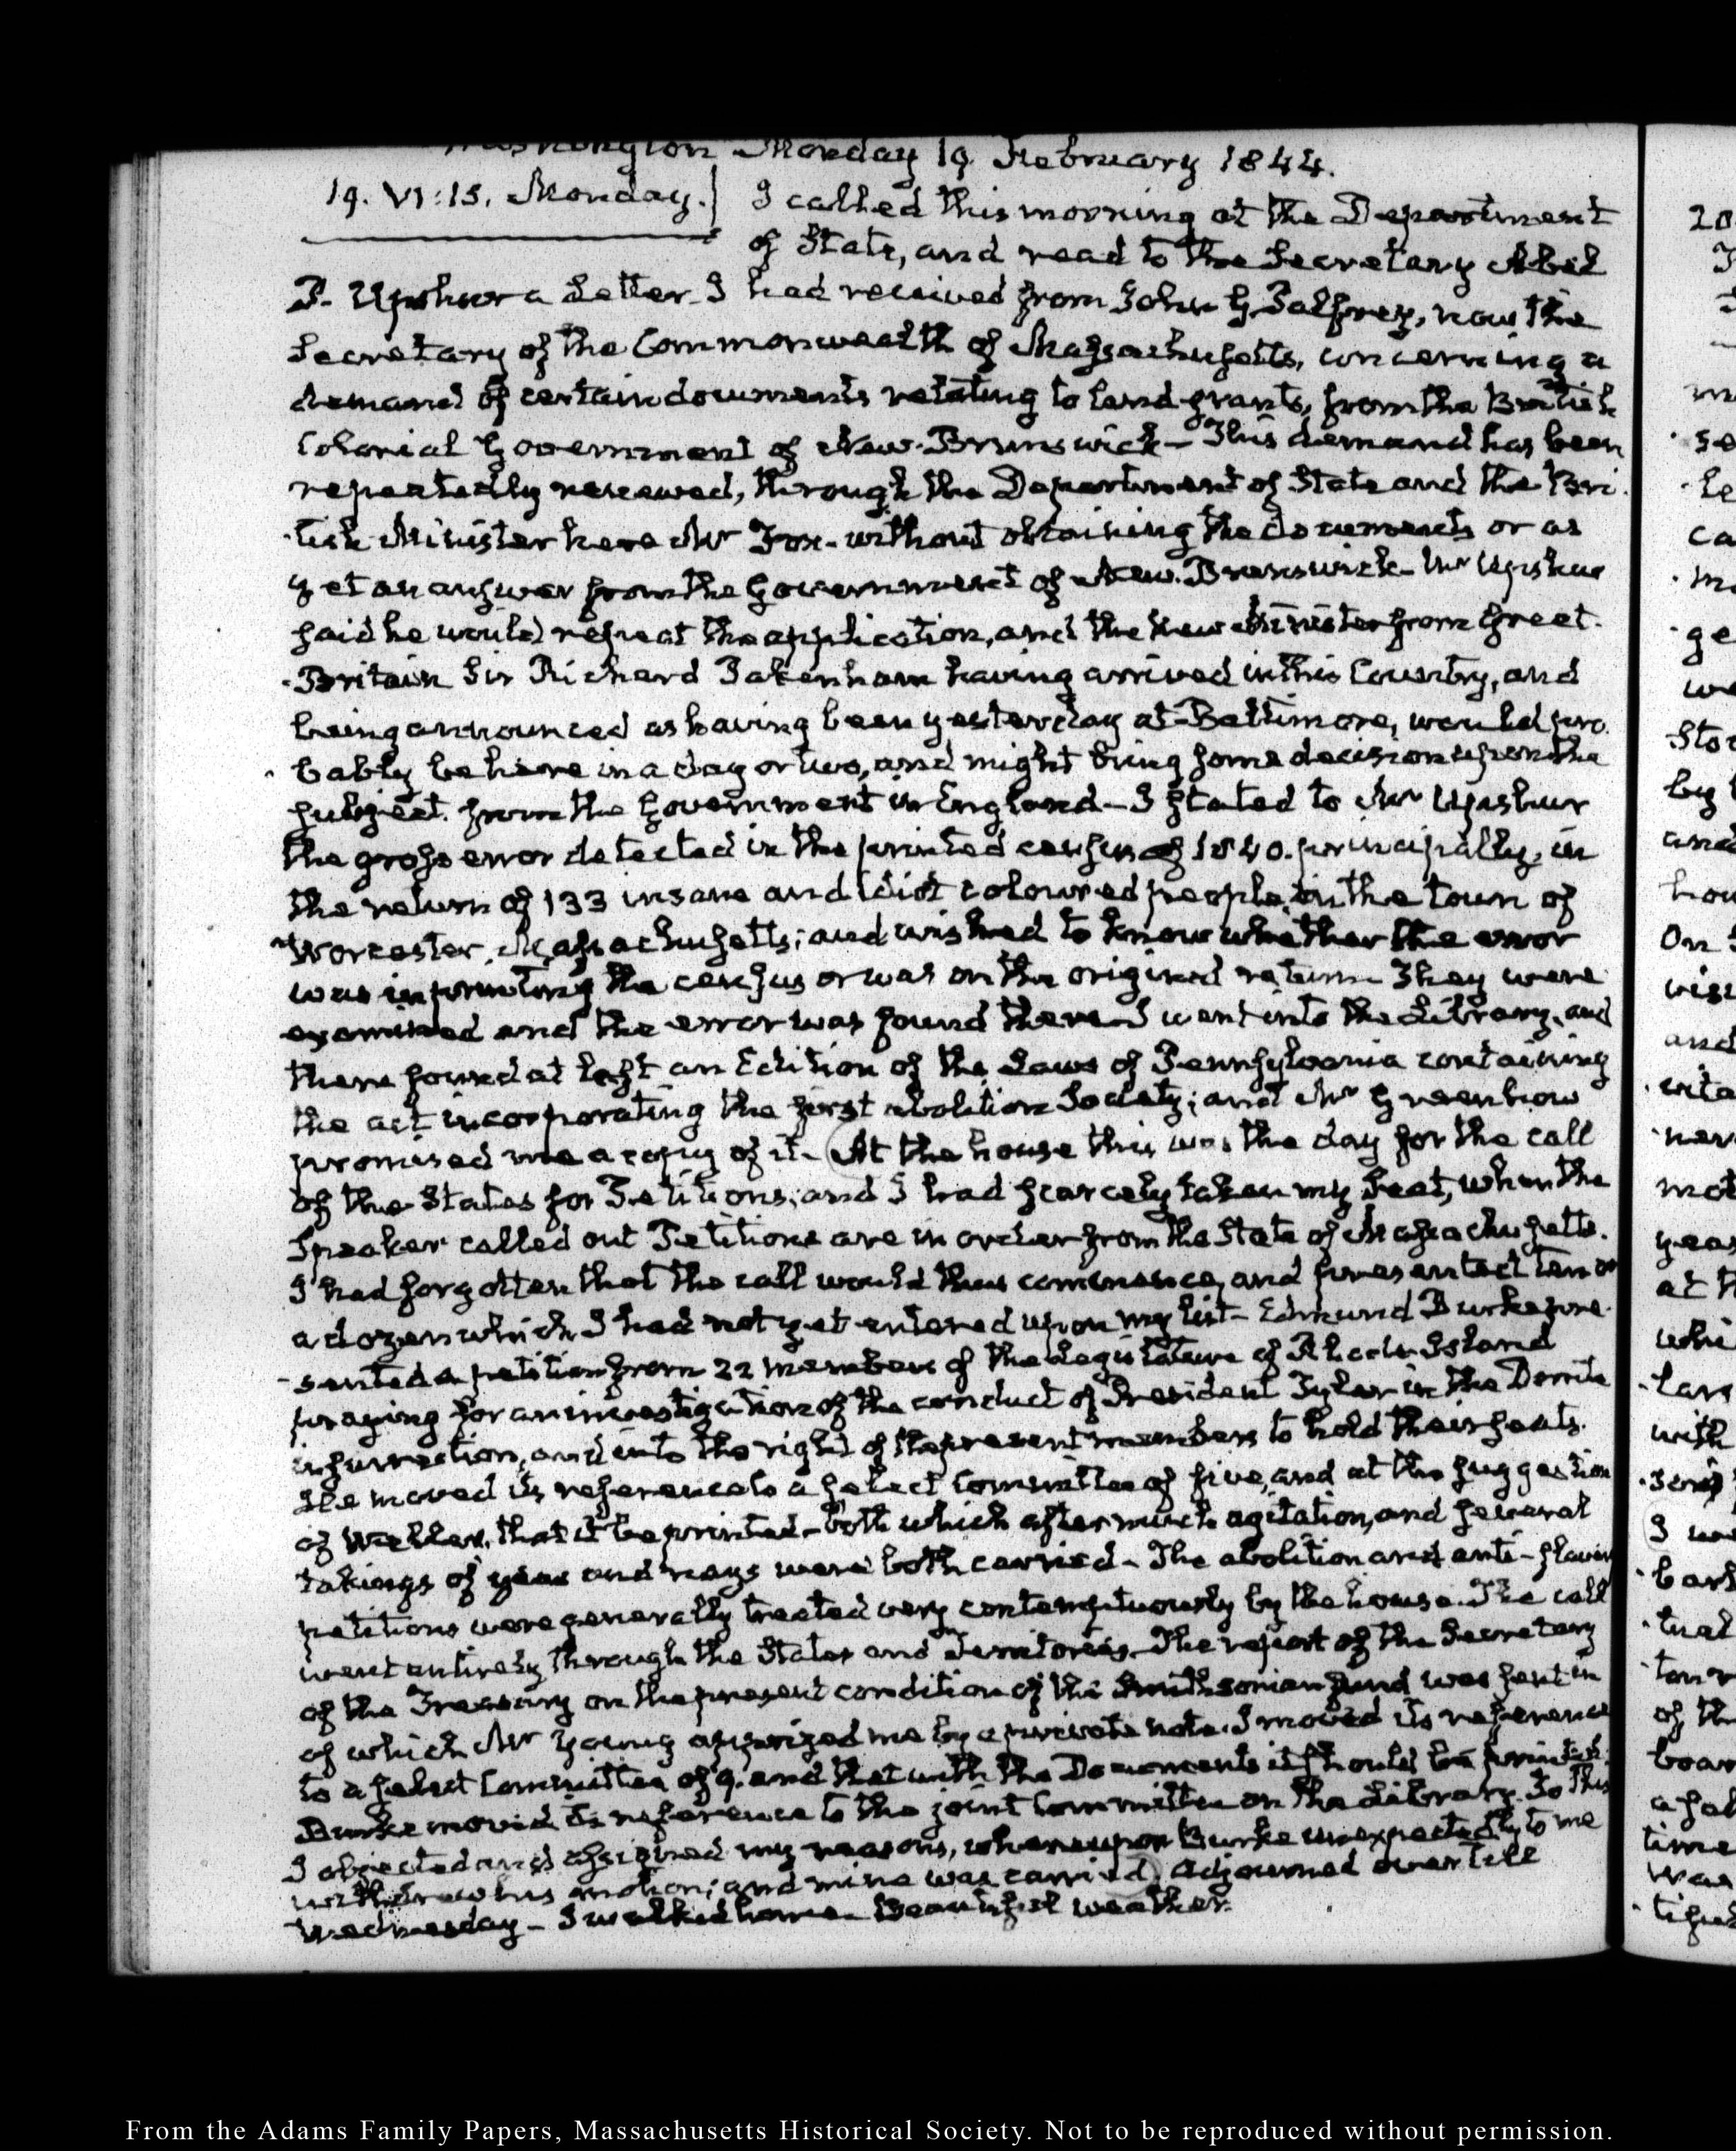 Washington Monday 19. February 1844.
19. VI:15. Monday. I called this morning at the Department
of State, and read to the Secretary Abel
P. Upshur a Letter I had received from John G. Palfrey, now the
Secretary of the Commonwealth of Massachusetts, concerning a
demand of certain documents relating to land-grants, from the British
Colonial Government of New-Brunswick— This demand has been
repeatedly renewed, through the Department of State and the Bri-
-tish Minister here Mr Fox. without obtaining the documents or as
yet an answer from the Government of New-Brunswick— Mr Upshur
said he would repeat the application, and the new Minister from Great-
-Britain Sir Richard Pakenham having arrived in this Country, and
being announced as having been yesterday at Baltimore, would pro-
-bably be here in a day or two, and might bring some decision upon the
subject from the Government in England— I stated to Mr Upshur
the gross error detected in the printed census of 1840. principally, in
the return of 133 insane and idiot coloured people, in the town of
Worcester, Massachusetts; and wished to know whether the error
was in printing the census or was in the original return— They were
examined and the error was found there— I went into the Library, and
there found at last an Edition of the Laws of Pennsylvania containing
the act incorporating the first abolition Society; and Mr Greenhow
promised me a copy of it— At the house this was the day for the call
of the States for Petitions; and I had scarcely taken my Seat, when the
Speaker called out Petitions are in order from the State of Massachusetts.
I had forgotten that the call would thus commence, and presented ten or
a dozen which I had not yet entered upon my list— Edmund Burke pre-
-sented a petition from 22 members of the Legislature of Rhode-Island
praying for an investigation of the conduct of President Tyler in the Dorrite
insurrection, and into the right of the present members to hold their seats.
He moved its reference to a select Committee of five, and at the suggestion
of Weller, that it be printed— both which after much agitation, and several
takings of yeas and nays were both carried— The abolition and anti-slavery
petitions were generally treated very contemptuously by the house. The call
went entirely through the States and Territories— The report of the Secretary
of the Treasury on the present condition of the Smithsonian fund was sent in
of which Mr Young apprized me by a private note. I moved its reference
to a select Committee of 9. and that with the Documents it should be printed.
Burke moved its reference to the joint Committee on the Library. To this
I objected and assigned my reasons, whereupon Burke unexpectedly to me
withdrew his motion; and mine was carried. Adjourned over till
Wednesday— I walked home. Beautiful weather.
From the Adams Family Papers, Massachusetts Historical Society. Not to be reproduced without permission.